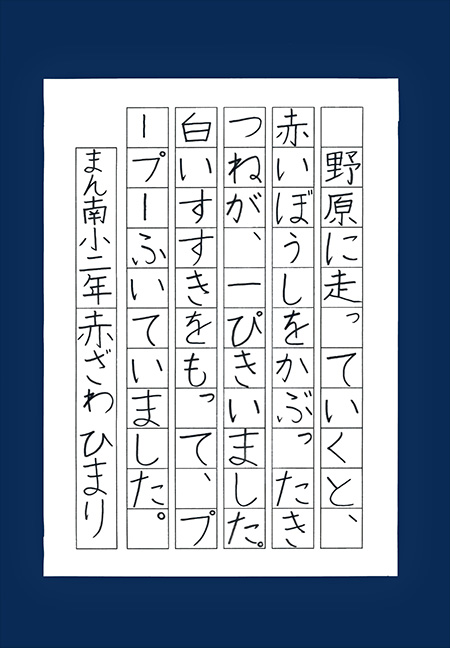 野原に走っていくと、
赤いぼうしをかぶったき
つねが、一ぴきいました。
白いすすきをもって、プ
ープーふいていました。
まん南小二年赤ざわひまり